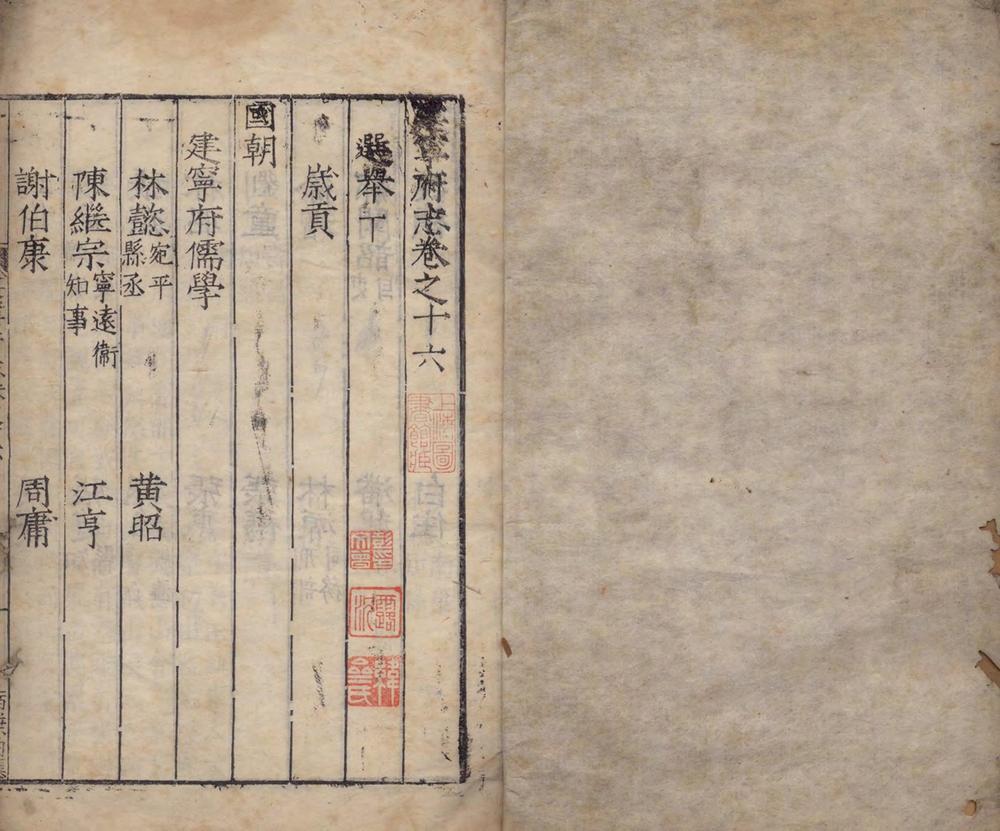 府志卷之十六
上海圖書館藏
選舉下
歲貢
國朝
建寧府儒學
林懿宛平縣丞 黄昭
陳繼宗寧遠衛知事 江亨
謝伯康 周庸